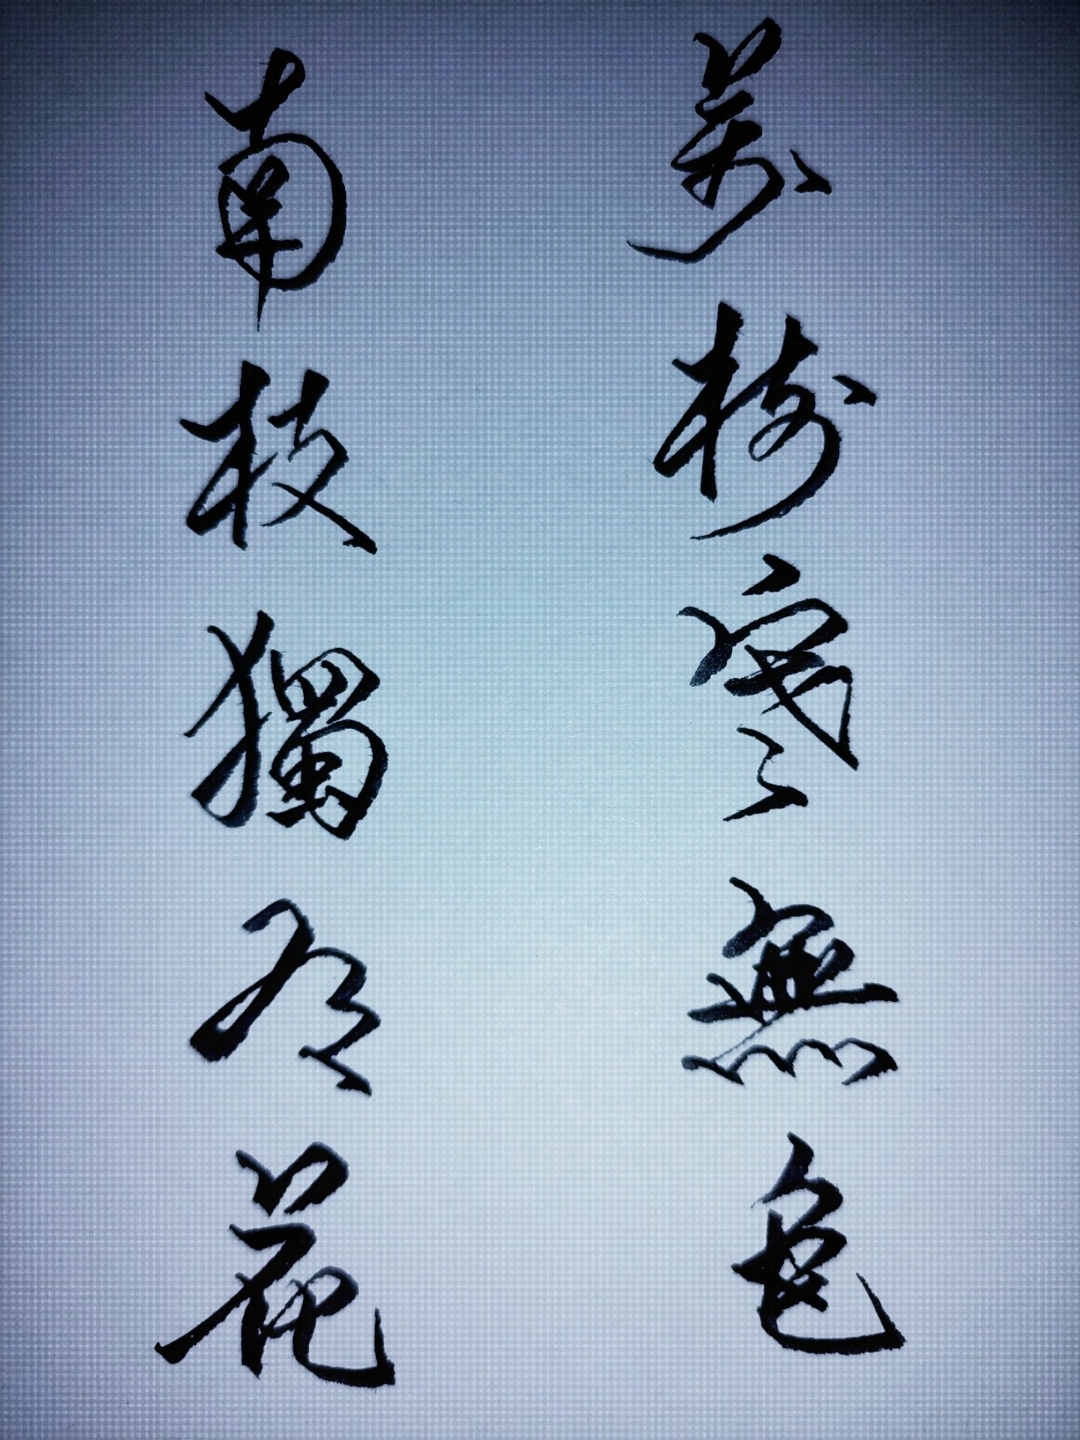 萬樹寒無色
南枝獨有花